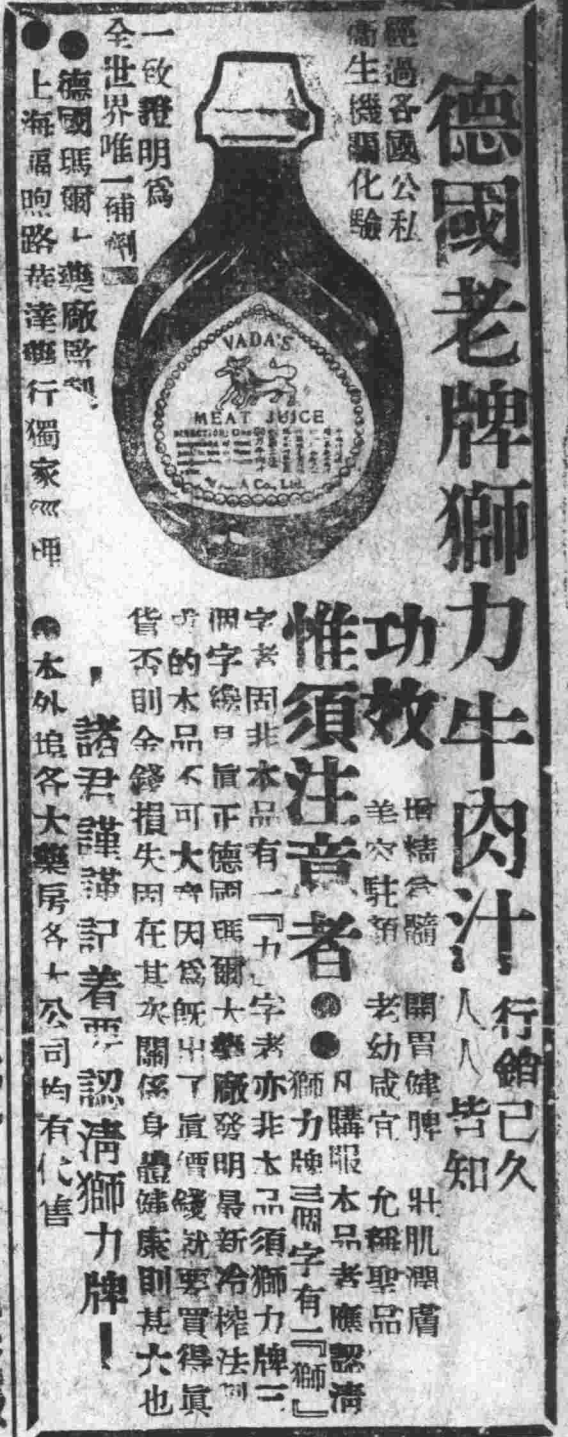 德國老牌獅力牛肉汁
行銷已久
人人皆知
經過各國公私
衞生機關化驗
一致證明爲
全世界唯一補劑
VADA'S
MEAT JUICE
Co., Ltd.
功效
增精益髓 開胃健脾 壯肌潤膚
美容駐顏 老幼咸宜 允稱聖品
惟須注意者
凡購服本品者應認清
獅力牌三個字有一『獅』
字者固非本品有一『力』字者亦非本品須獅力牌三
個字纔是眞正德國瑪爾大藥廠發明最新冷榨法
的本品不可大意因爲旣出了眞價錢就要買得眞
貨否則金錢損失固在其次關係身體健康則甚大也
諸君謹謹記着要認淸獅力牌！
●德國瑪爾大藥廠監製
●上海福煦路華達藥行獨家經理
●本外埠各大藥房各大公司均有代售